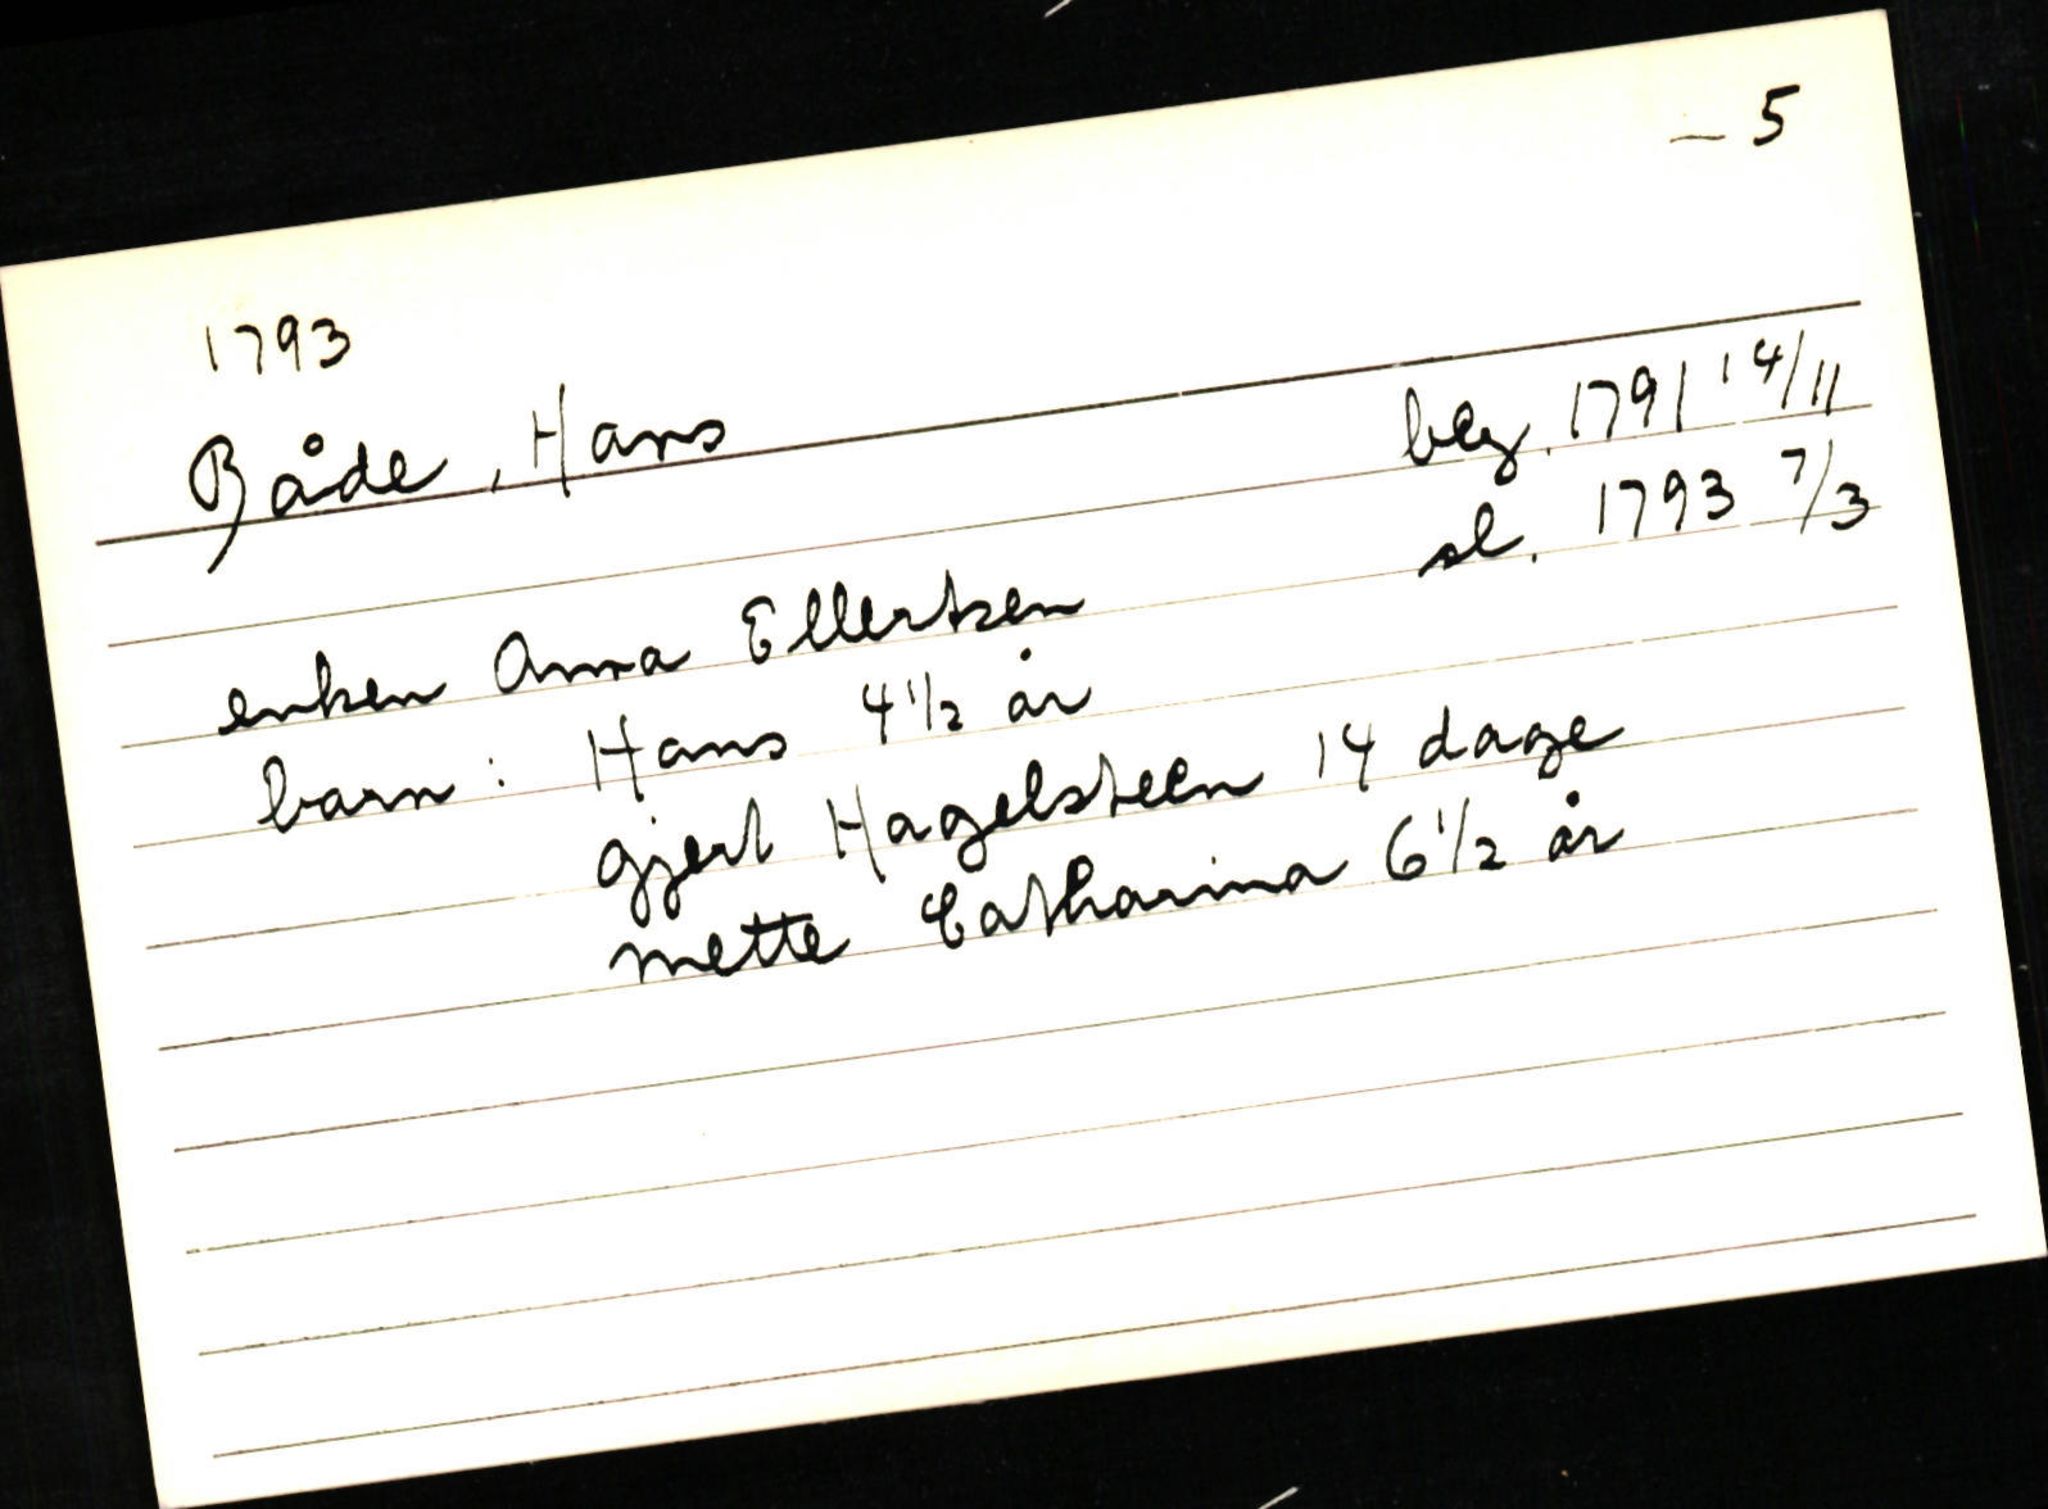 — 5
1793
Både, Hans
beg. 1791 14/11
sl. 1793 7/3
enken Anna Ellertsen
barn: Hans 4 1/2 år
Gjert Hagelsteen 14 dage
Mette Catharina 6 1/2 år